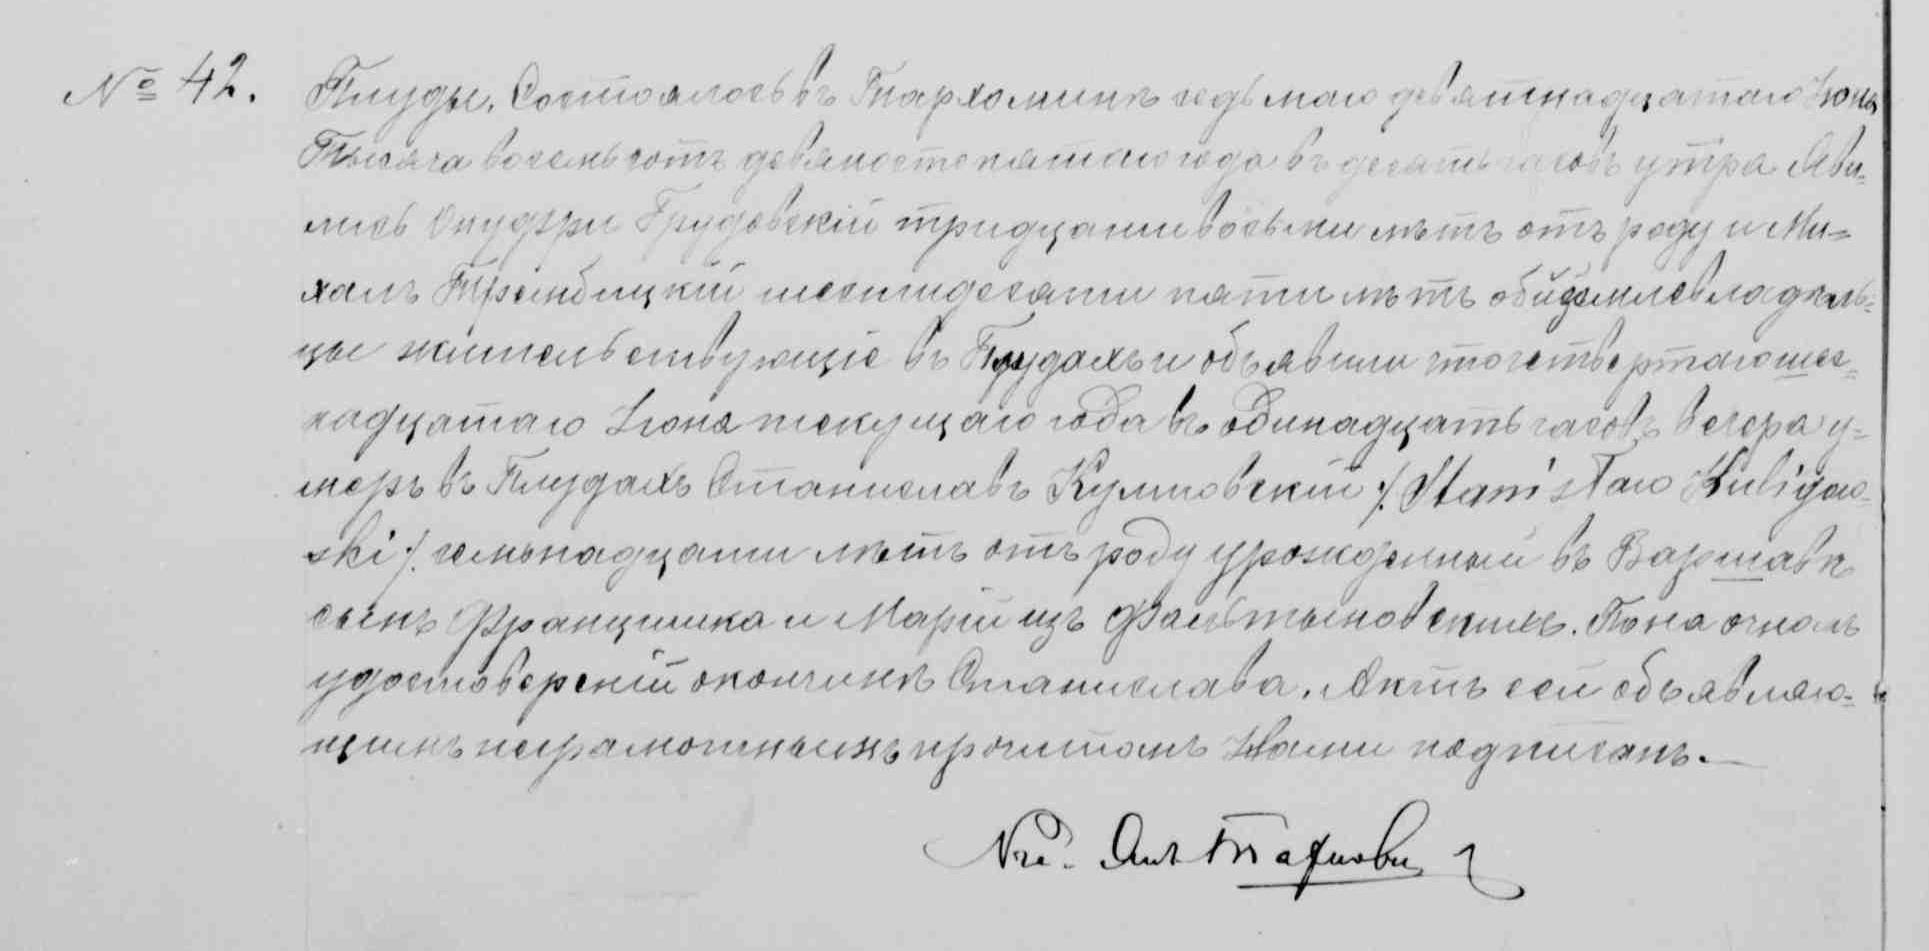 № 42.
Плуды. Состоялось въ Тархоминѣ седьмаго девятнадцатаго Іюня
Тысяча восемьсотъ девяносто пятаго года въ десять часовъ утра. Яви=
лись Онуфри Грудовскій тридцати восьми лѣтъ отъ роду и Ми=
халъ Трембицкій шестидесяти пяти лѣтъ оба землевладѣль=
цы жительствующіе въ Плудахъ и объявили что четвертаго шес=
надцатаго Іюня текущаго года въ одинадцать часовъ вечера у=
меръ въ Плудахъ Станиславъ Кулиговскій /. Stanisław Kuligow=
ski ./ семьнадцати лѣтъ отъ роду урожденный въ Варшавѣ
сынъ Францишка и Маріи изъ По настоль
удостовереніи окончинѣ Станислава. Актъ сей объявляю=
щимъ неграмотнымъ прочитанъ Нами подписанъ.—